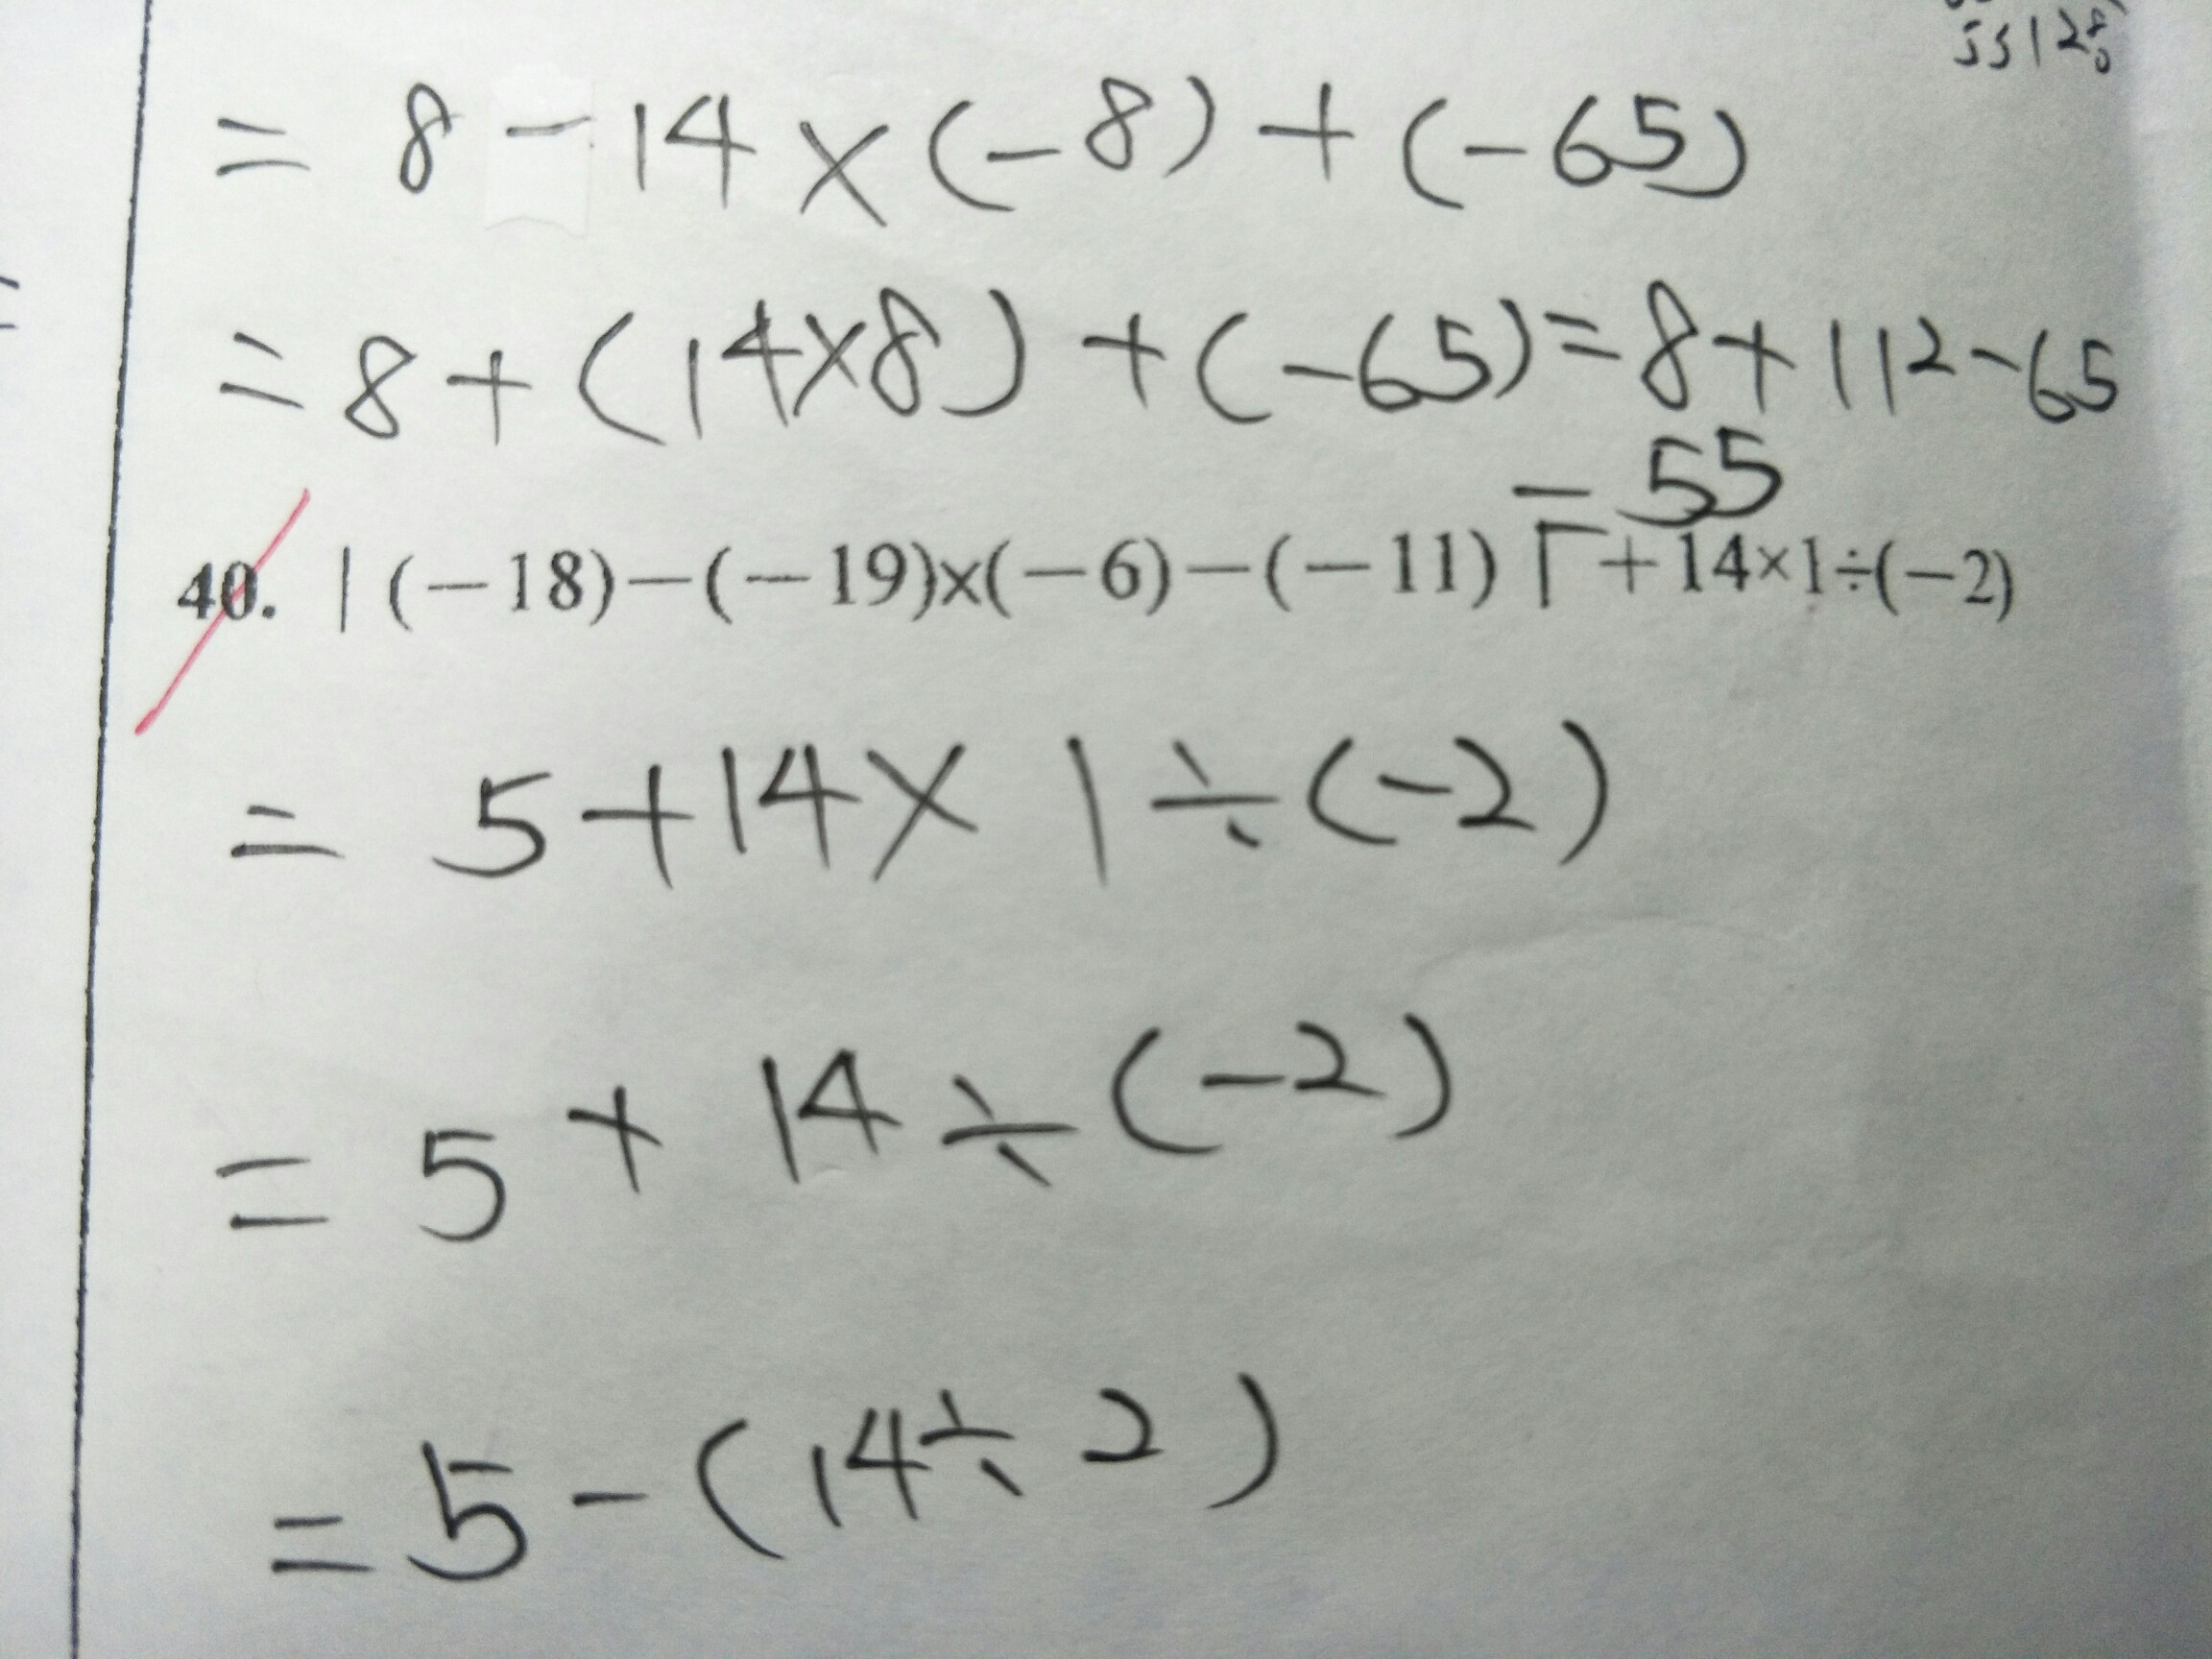 = 8 - 14 × (-8) + (-65)
= 8 + (14×8) + (-65) = 8 + 112 - 65
= 55
40. | (−18)−(−19)×(−6)−(−11) | +14×1÷(−2)
= 5 + 14 × 1 ÷ (-2)
= 5 + 14 ÷ (-2)
= 5 - (14 ÷ 2)